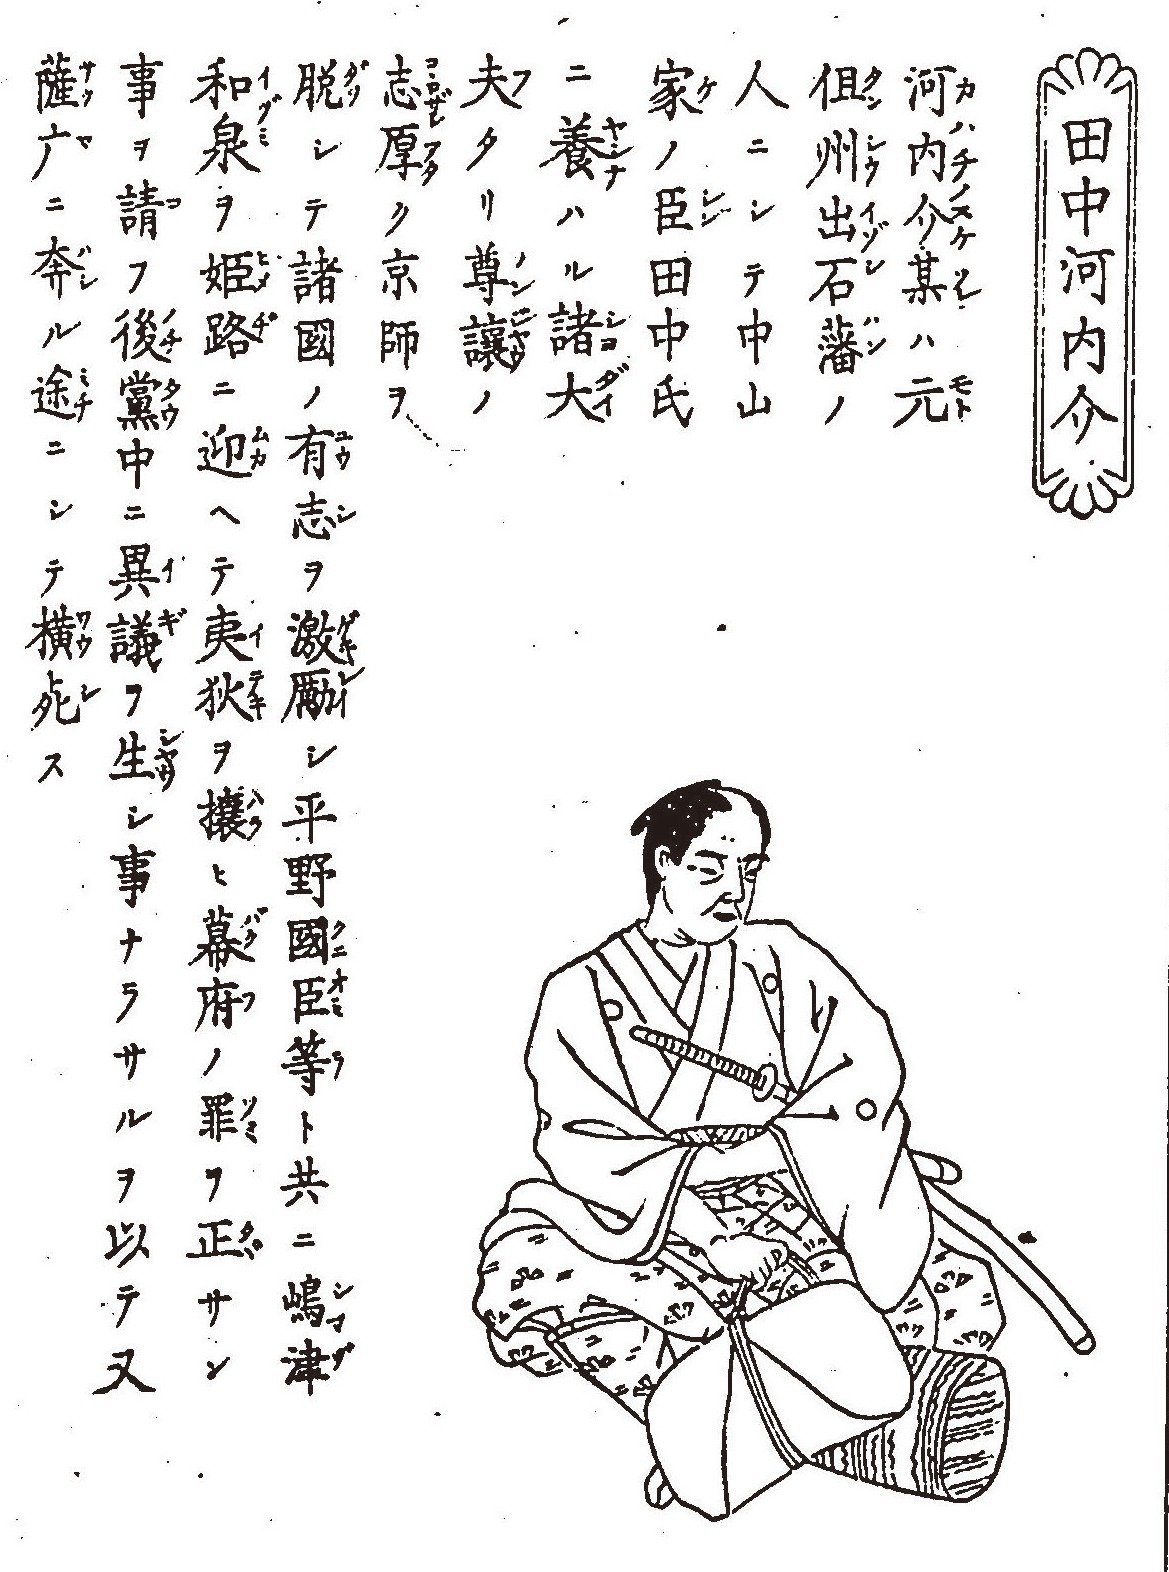 田中河内介
河内介某ハ元
但州出石藩ノ
人ニシテ中山
家ノ臣田中氏
ニ養ハル諸大
夫タリ尊讓ノ
志厚ク京師ヲ
脱シテ諸國ノ有志ヲ激勵シ平野國臣等ト共ニ嶋津
和泉ヲ姫路ニ迎ヘテ夷狄ヲ攘ヒ幕府ノ罪ヲ正サン
事ヲ請フ後黨中ニ異議ヲ生シ事ナラサルヲ以テ又
薩广ニ奔ル途ニシテ横死ス